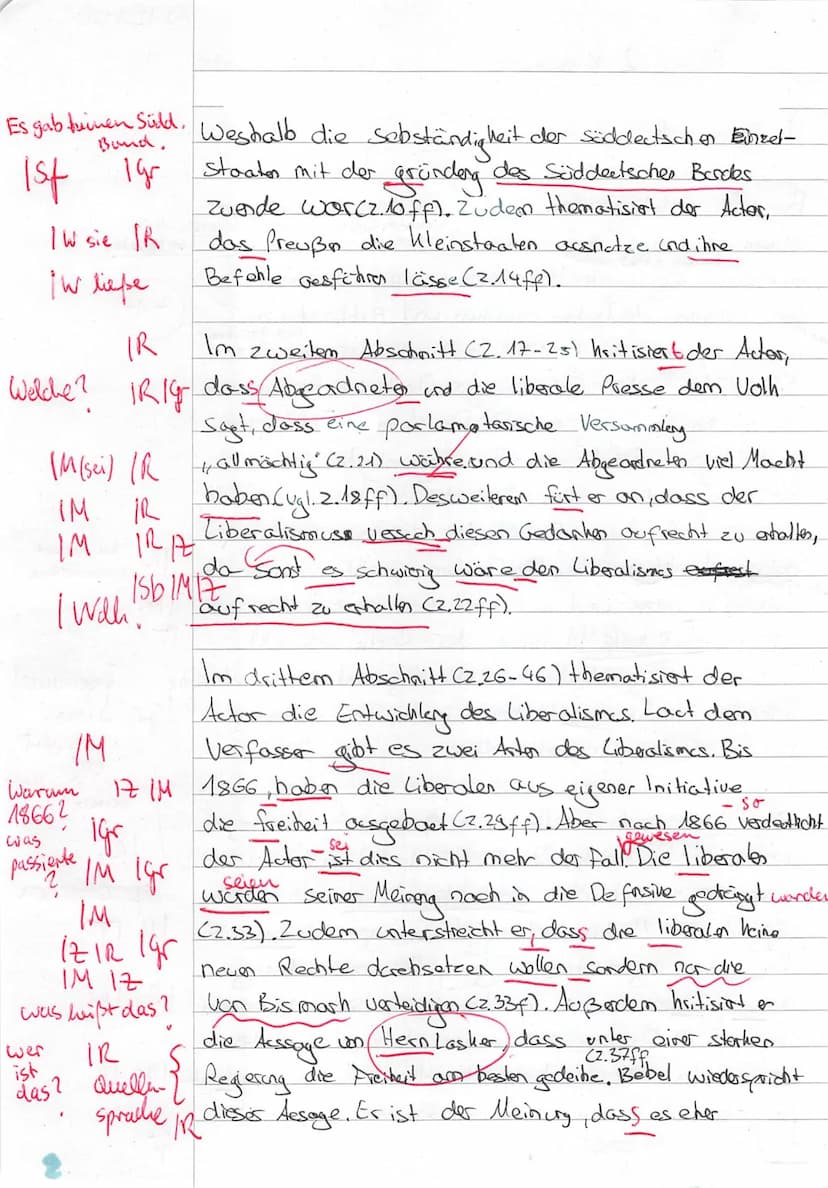 Es gab keinen Südd. Bund.
Weshalb die sebständigkeit der süddeutschen Einzel-
|Sf |gr Staaten mit der gründung des Süddeutschen Bundes
zuende war (Z.10ff). Zudem thematisiert der Autor,
|W sie |R das Preußen die Kleinstaaten ausnutze und ihre
|W ließe Befehle ausführen lässe (Z.14ff).
|R Im zweitem Abschnitt (Z.17-25) kritisiert der Autor,
Welche? |R |gr dass Abgeordneter und die liberale Presse dem Volk
sagt, dass eine parlamentarische Versammlung
|M (sei) |R „allmächtig" (Z.21) währe und die Abgeordneten viel Macht
|M |R haben (vgl. Z.18ff). Desweiterem fürt er an, dass der
|M |R |Z Liberalismuss versuch diesen Gedanken aufrecht zu erhalten,
|Sb |M |Z da sonst es schwierig wäre den Liberalismus
|Wdh. aufrecht zu erhalten (Z.22ff).
Im drittem Abschnitt (Z.26-46) thematisiert der
Autor die Entwicklung des Liberalismus. Laut dem
|M Verfasser gibt es zwei Arten des Liberalismus. Bis
Warum 1866? |Z |M 1866, haben die Liberalen aus eigener Initiative
|gr die freiheit ausgebaut (Z.29ff). Aber nach 1866 - so verdeutlicht
was passierte? |M |gr der Autor - ist sei dies nicht mehr der Fall gewesen. Die liberalen
|M würden seien seiner Meinung nach in die Defensive gedrängt worden
|Z |R |gr (Z.33). Zudem unterstreicht er, dass die liberalen keine
|M |Z neuen Rechte durchsetzen wollen sondern nur die
was heißt das? von Bismark verteidigen (Z.33f). Außerdem kritisiert er
wer ist das? |R die Aussage von Hern Lasker, dass unter einer starken
Quellensprache Regierung die Freiheit am besten gedeihe (Z.37ff). Bebel wiederspricht
|R dieser Aussage. Er ist der Meinung, dass es eher
2